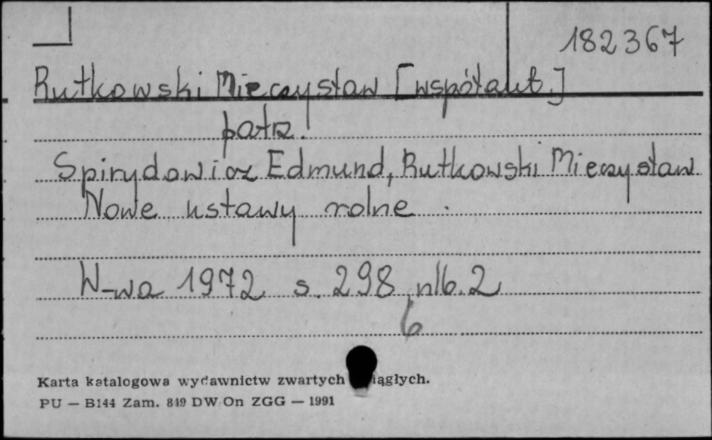 182367
Rutkowski Mieczysław [współaut.]
patrz.
Spirydowicz Edmund, Rutkowski Mieczysław.
Nowe ustawy rolne.
W-wa 1972 s. 298, nlb. 2
6
Karta katalogowa wydawnictw zwartych iągłych.
PU — B144 Zam. 819 DW On ZGG — 1991